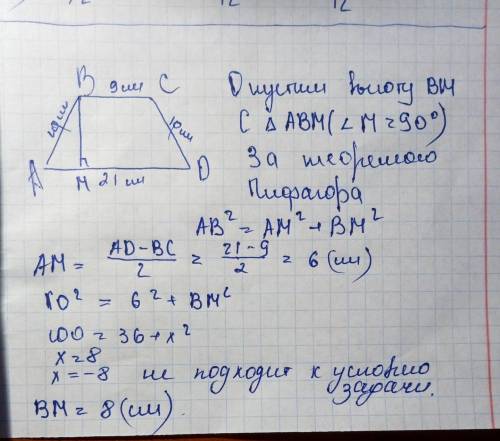 B 9см C
10см 10см
A M 21см D
Опустим высоту BM
С △ ABM (∠M = 90°)
За теоремою
Пифагора
AB² = AM² + BM²
AM = (AD-BC)/2 = (21-9)/2 = 6 (см)
10² = 6² + BM²
100 = 36 + x²
x = 8
x = -8 не подходит к условию
задачи.
BM = 8 (см).